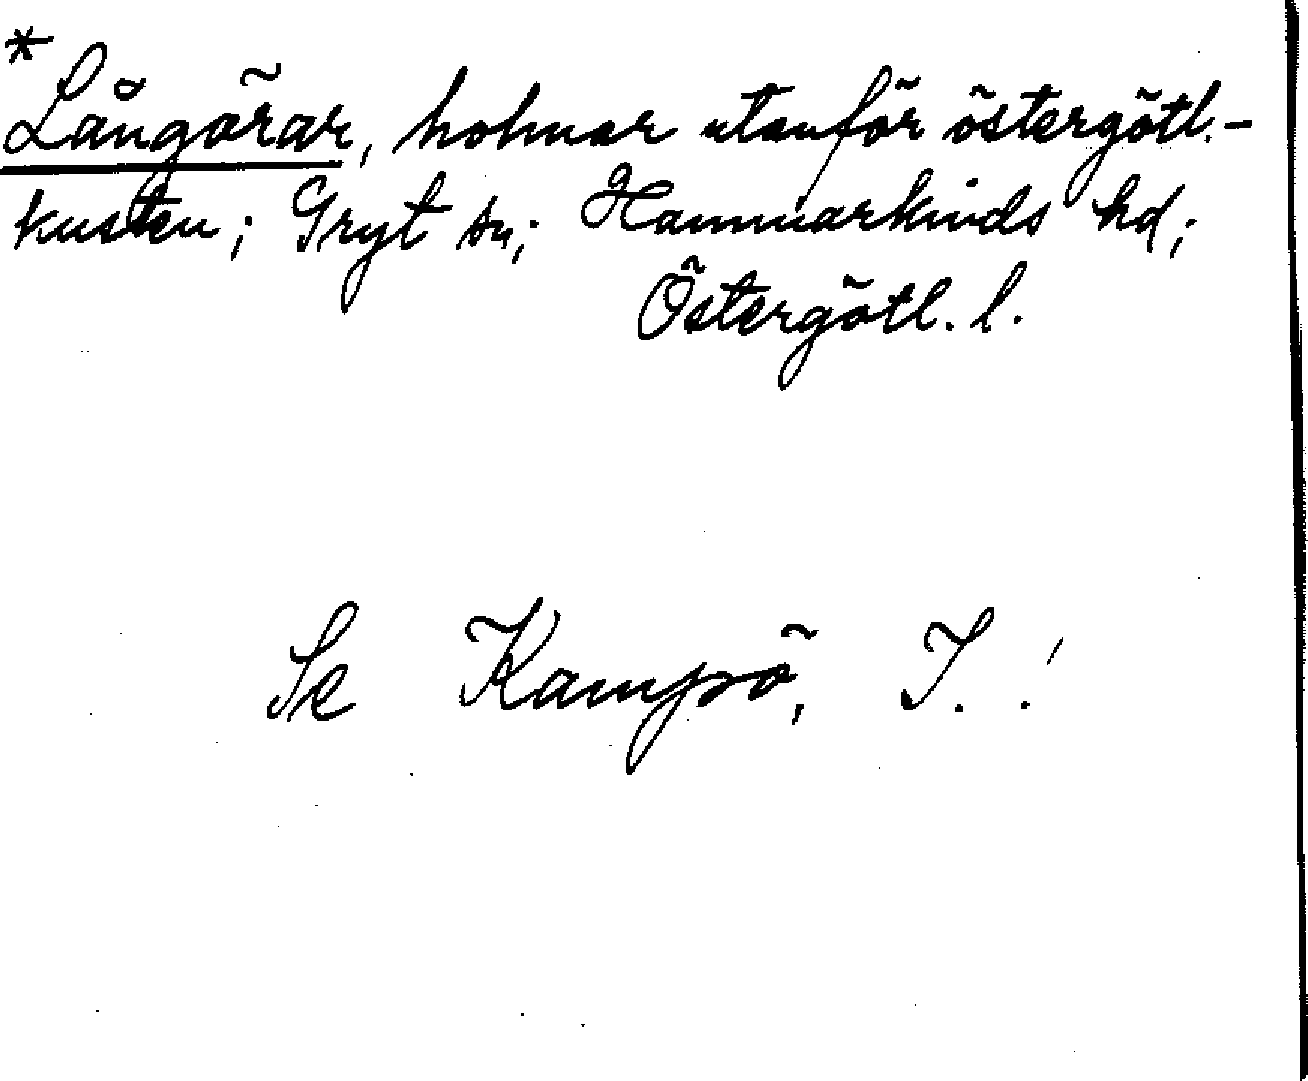 *
Långörar, holmar utanför östergötl.-
kusten; Gryt sn; Hammarkinds hd;
Östergötl. l.
Se Kampö, I.!